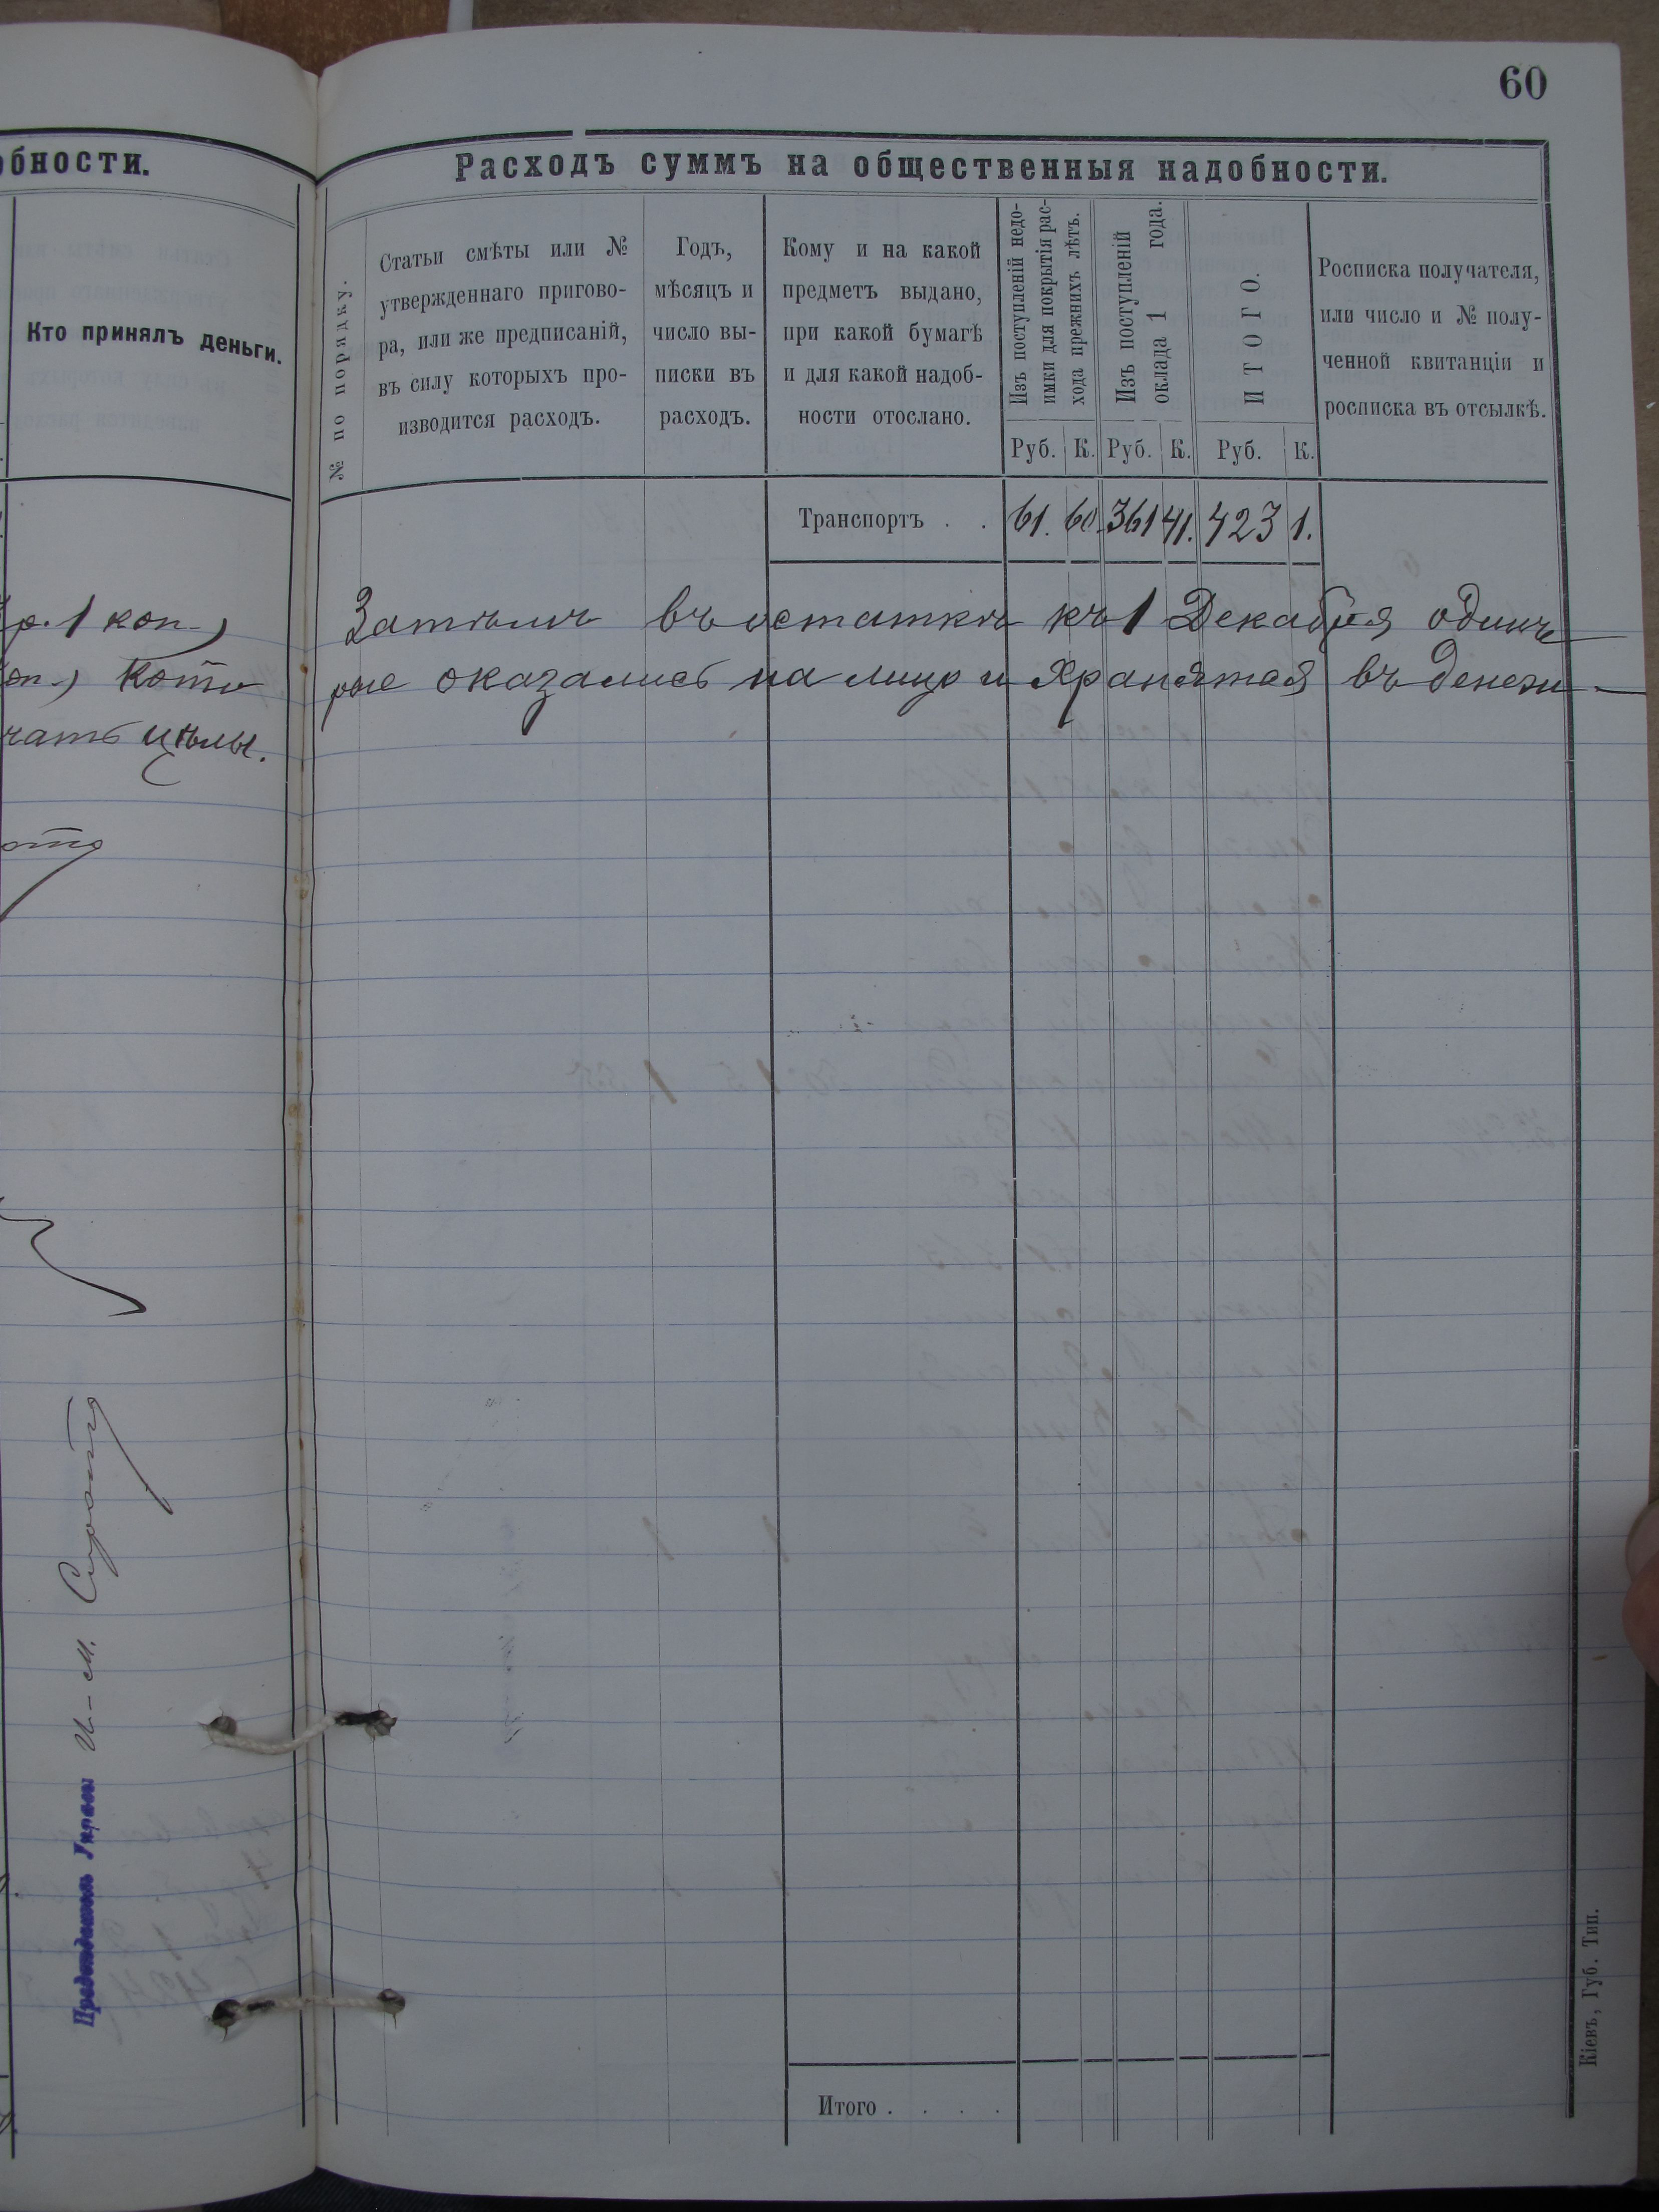 60
обности.
Кто принялъ деньги.
р. 1 коп.)
оп.) Кото
чать цѣлы.
Предсѣдатель Управы И-М. Сирота
Расходъ суммъ на общественныя надобности.
№ по порядку.
Статьи смѣты или №
утвержденнаго пригово-
ра, или же предписаній,
въ силу которыхъ про-
изводится расходъ.
Годъ,
мѣсяцъ и
число вы-
писки въ
расходъ.
Кому и на какой
предметъ выдано,
при какой бумагѣ
и для какой надоб-
ности отослано.
Изъ поступленій недо-
имки для покрытія рас-
хода прежнихъ лѣтъ.
Изъ поступленій
оклада 1 года.
ИТОГО.
Росписка получателя,
или число и № полу-
ченной квитанціи и
росписка въ отсылкѣ.
Руб. К. Руб. К. Руб. К.
Транспортъ . . 61. 60. 361 41. 423 1.
Затѣмъ въ остаткѣ къ 1 Декабря одинъ
рые оказались на лицо и хранятся въ денежн—
Итого . . . .
Кіевъ, Губ. Тип.